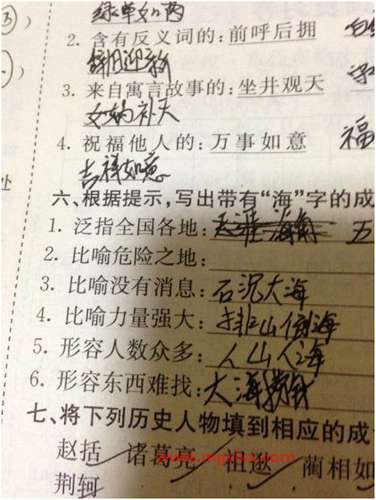 绿草如茵
2. 含有反义词的: 前呼后拥
辞旧迎新
3. 来自寓言故事的: 坐井观天
女娲补天
4. 祝福他人的: 万事如意 福
吉祥如意
六、根据提示,写出带有“海”字的成
1. 泛指全国各地: 天涯海角 五
2. 比喻危险之地:
3. 比喻没有消息: 石沉大海
4. 比喻力量强大: 排山倒海
5. 形容人数众多: 人山人海
6. 形容东西难找: 大海捞针
七、将下列历史人物填到相应的成
赵括 诸葛亮 祖逖 蔺相如
荆轲